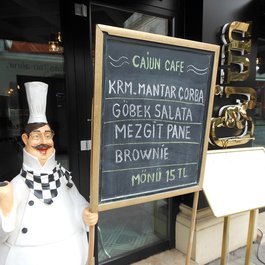 CAJUN CAFE
KRM. MANTAR ÇORBA
GÖBEK SALATA
MEZGİT PANE
BROWNIE
MÖNÜ 15 TL